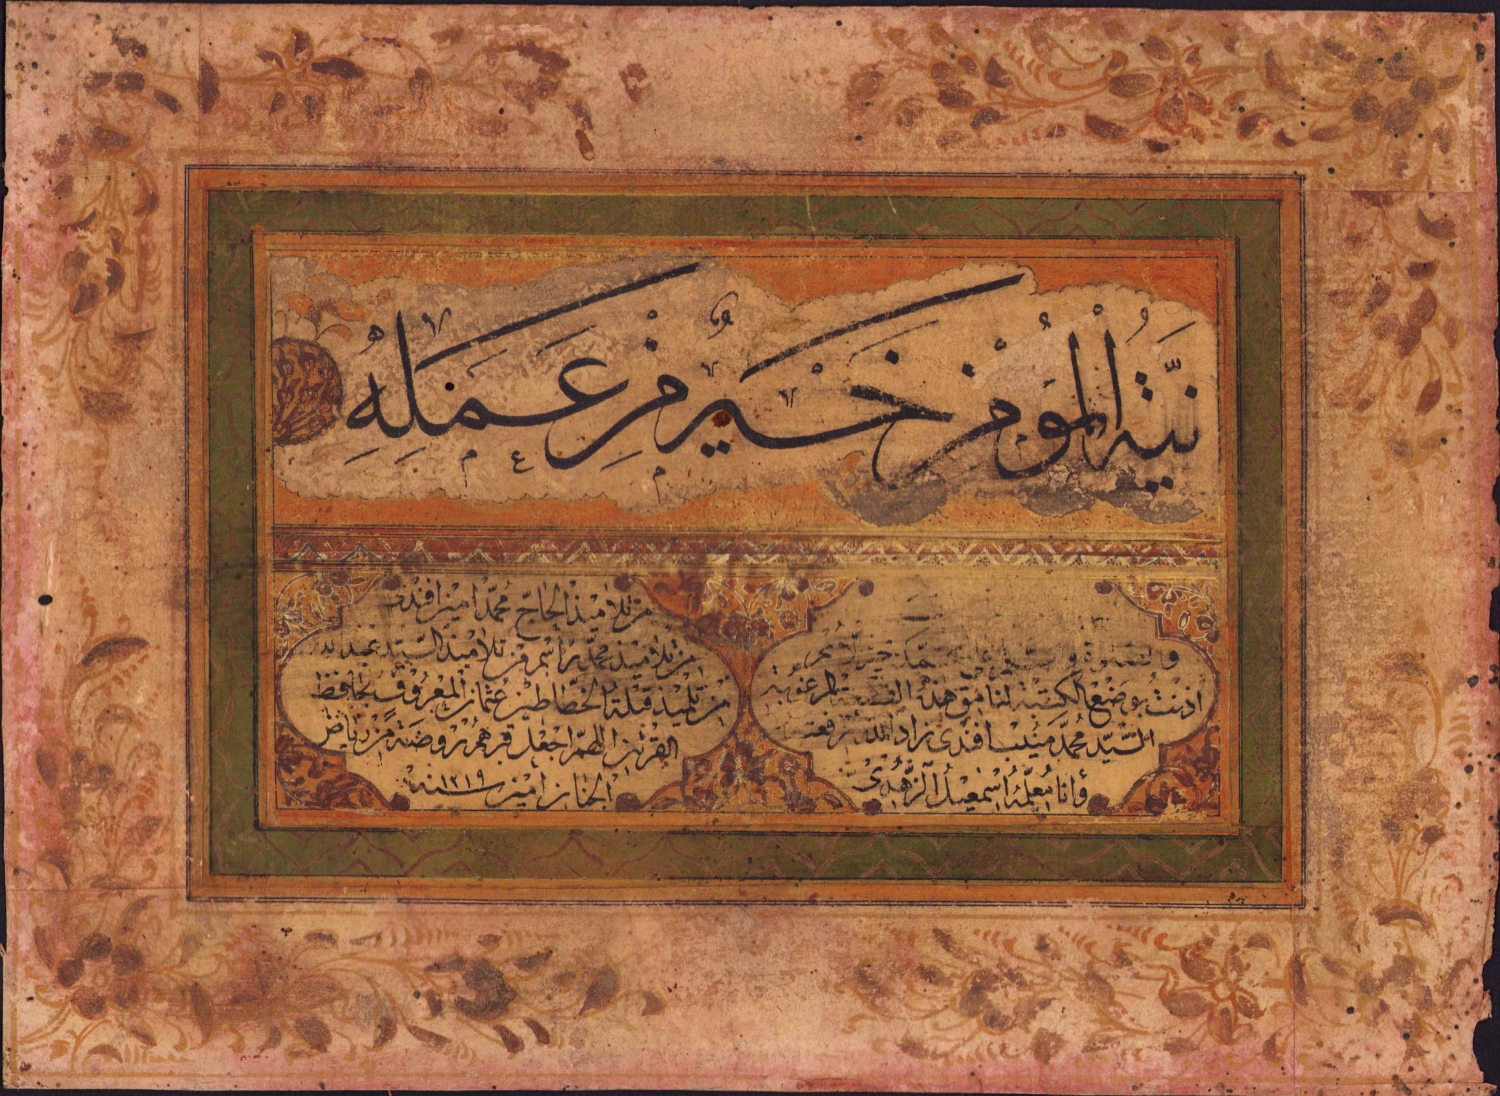 نِيَّةُ الْمُؤْمِنِ خَيْرٌ مِنْ عَمَلِهِ
والصلوة على محمد خير
اذنت بوضع الكتبة لنامق هذه المرغوبة
السيد محمد منيب افندى زاد الله
وأنا معلمه اسمعيل الزهدى
من تلاميذ الحاج محمد امير افندى
من تلاميذ محمد راسم من تلاميذ السيد عبد الله
من تلميذ قبلة الخطاطين عثمان المعروف بحافظ
القرآن اللهم اجعل قبرهم روضة من رياض
الجنان امين سنة ١٢١٩